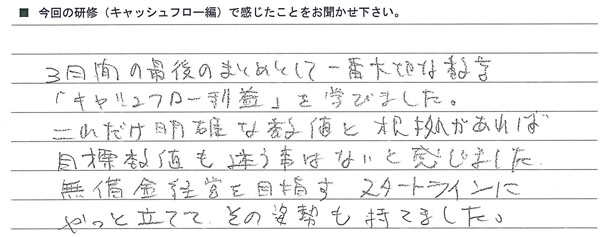 ■ 今回の研修（キャッシュフロー編）で感じたことをお聞かせ下さい。
3日間の最後のまとめとして一番大切な数字
「キャッシュフロー利益」を学びました。
これだけ明確な数値と根拠があれば
目標数値も迷う事はないと感じました
無借金経営を目指す スタートラインに
やっと立てて、その姿勢も持てました。